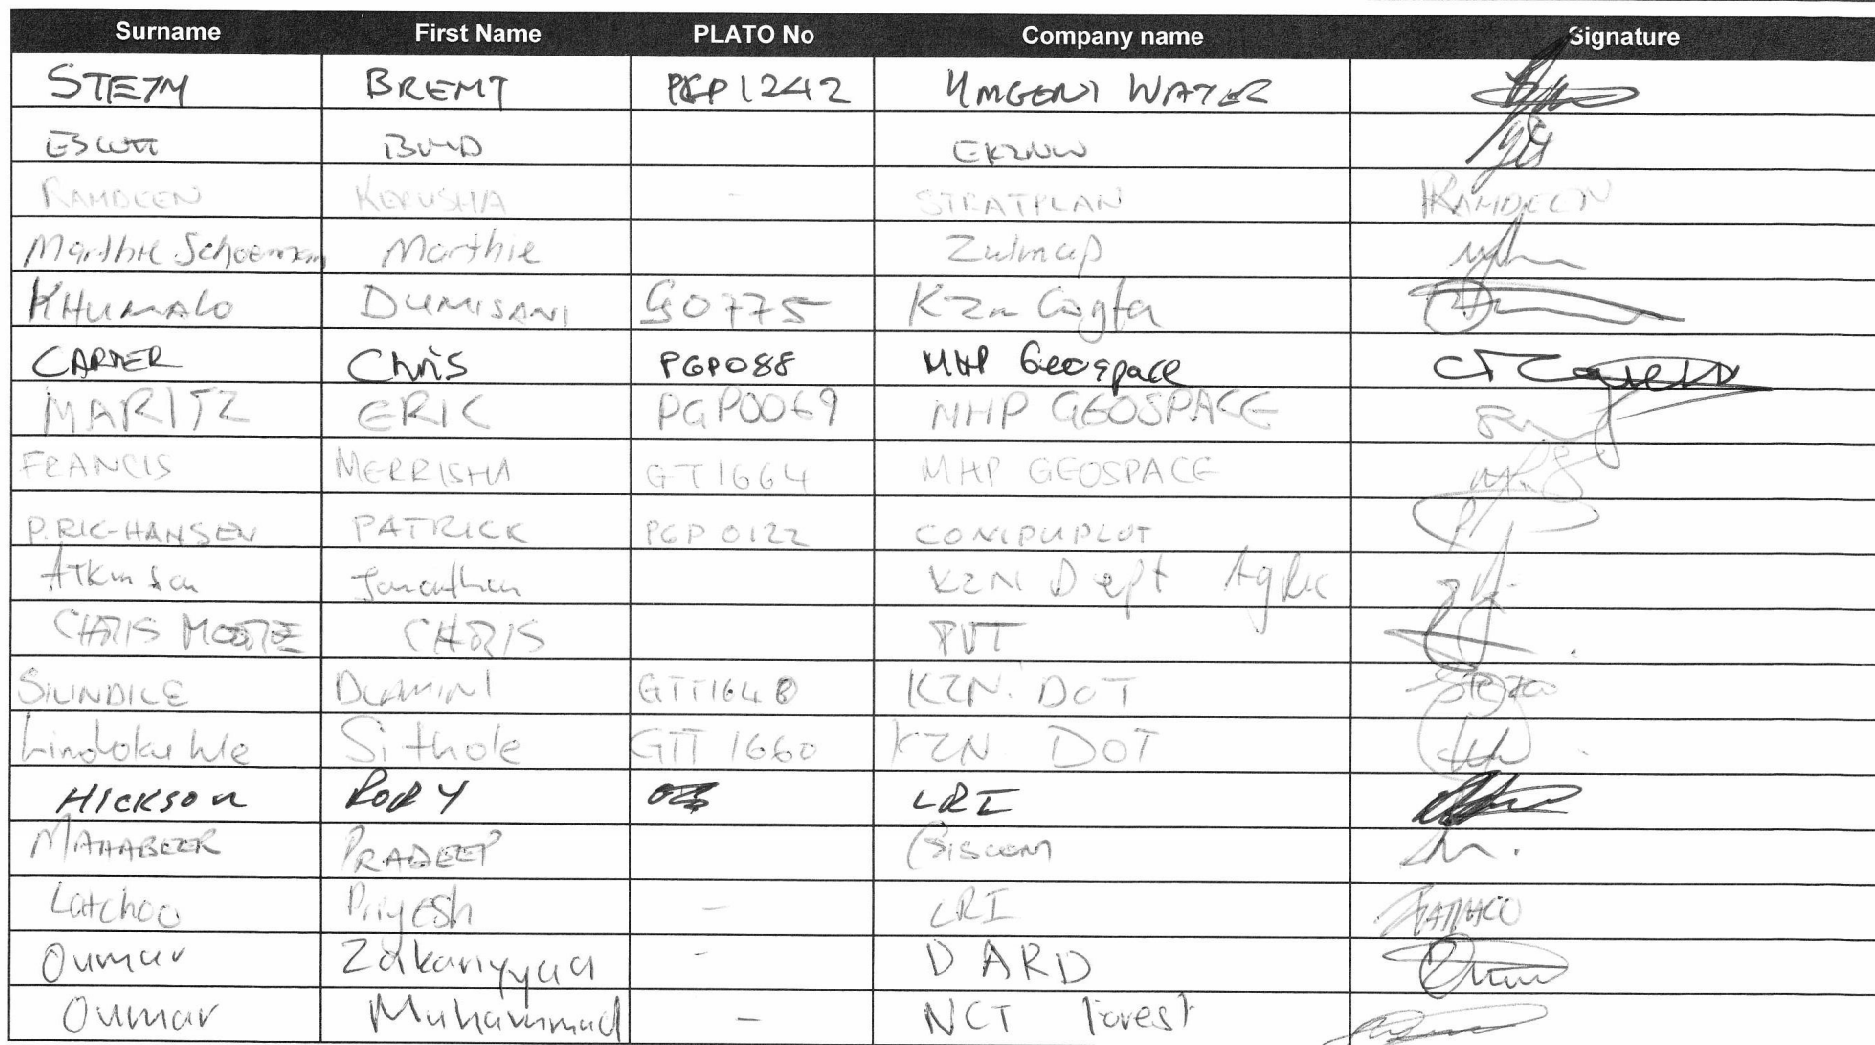 Surname First Name PLATO No Company name Signature
STEYN BRENT PGP1242 UMGENI WATER
ESCOTT BOYD EKZNW
RAMDEEN KERUSHA - STRATPLAN RAMDEEN
Marthie Schoeman Marthie Zulmap
KHUMALO DUMISANI G0775 Kzn Cogta
CARTER Chris PGP088 MHP Geospace
MARITZ ERIC PGP0069 MHP GEOSPACE
FRANCIS MERRISHA GT1664 MHP GEOSPACE
P.RIC-HANSEN PATRICK PGP0122 COMPUPLOT
Atkinson Jonathan KZN Dept Agric
CHRIS MOORE CHRIS PVT
SILINDILE DLAMINI GTT1648 KZN. DOT
Lindokuhle Sithole GTT 1660 KZN DOT
HICKSON RORY LRI
MAHABEER PRADEEP Giscom
Latchoo Priyesh - LRI
Oumar Zakariyyaa - DARD
Oumar Muhammad - NCT Forest